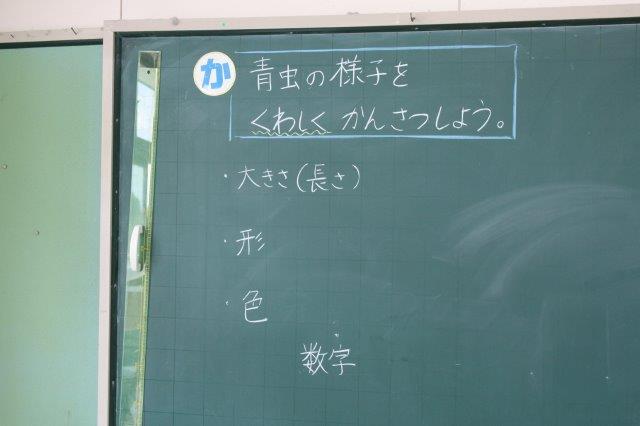 か
青虫の様子を
くわしくかんさつしよう。
・大きさ(長さ)
・形
・色
数字